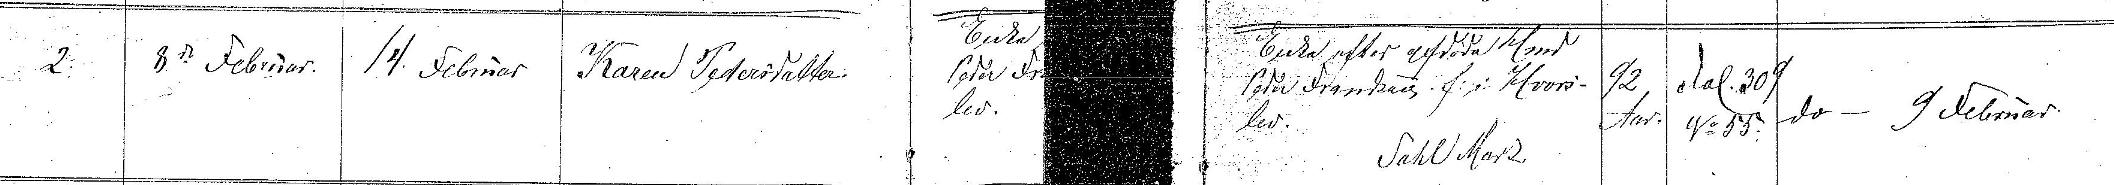 2. 8de Februar. 14. Februar Karen Pedersdatter.
Enke
Peder Fr
lev.
Enke efter afdøde Hmd
Peder Frandsen, f. i Hvors-
lev.
Sahl Mark
92
Aar.
Pal. 309
No 55.
do — 9 Februar.